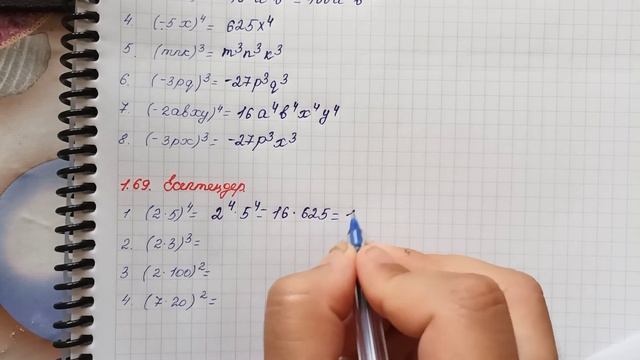 4. (-5x)⁴= 625x⁴
5. (mnk)³= m³n³k³
6. (-3pq)³= -27p³q³
7. (-2abxy)⁴= 16a⁴b⁴x⁴y⁴
8. (-3px)³= -27p³x³
1.69. Есептеңдер
1 (2·5)⁴= 2⁴·5⁴= 16·625= 1
2. (2·3)³=
3 (2·100)²=
4. (7·20)²=